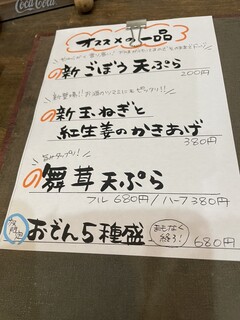 Coca-Cola
オススメの一品
の新ごぼう天ぷら
200円
新登場!! お酒のツマミにもピッタリ!!
の新玉ねぎと
紅生姜のかきあげ
380円
旨みタップリ!!
の舞茸天ぷら
フル 680円 / ハーフ 380円
おでん5種盛
まもなく
終了!
680円